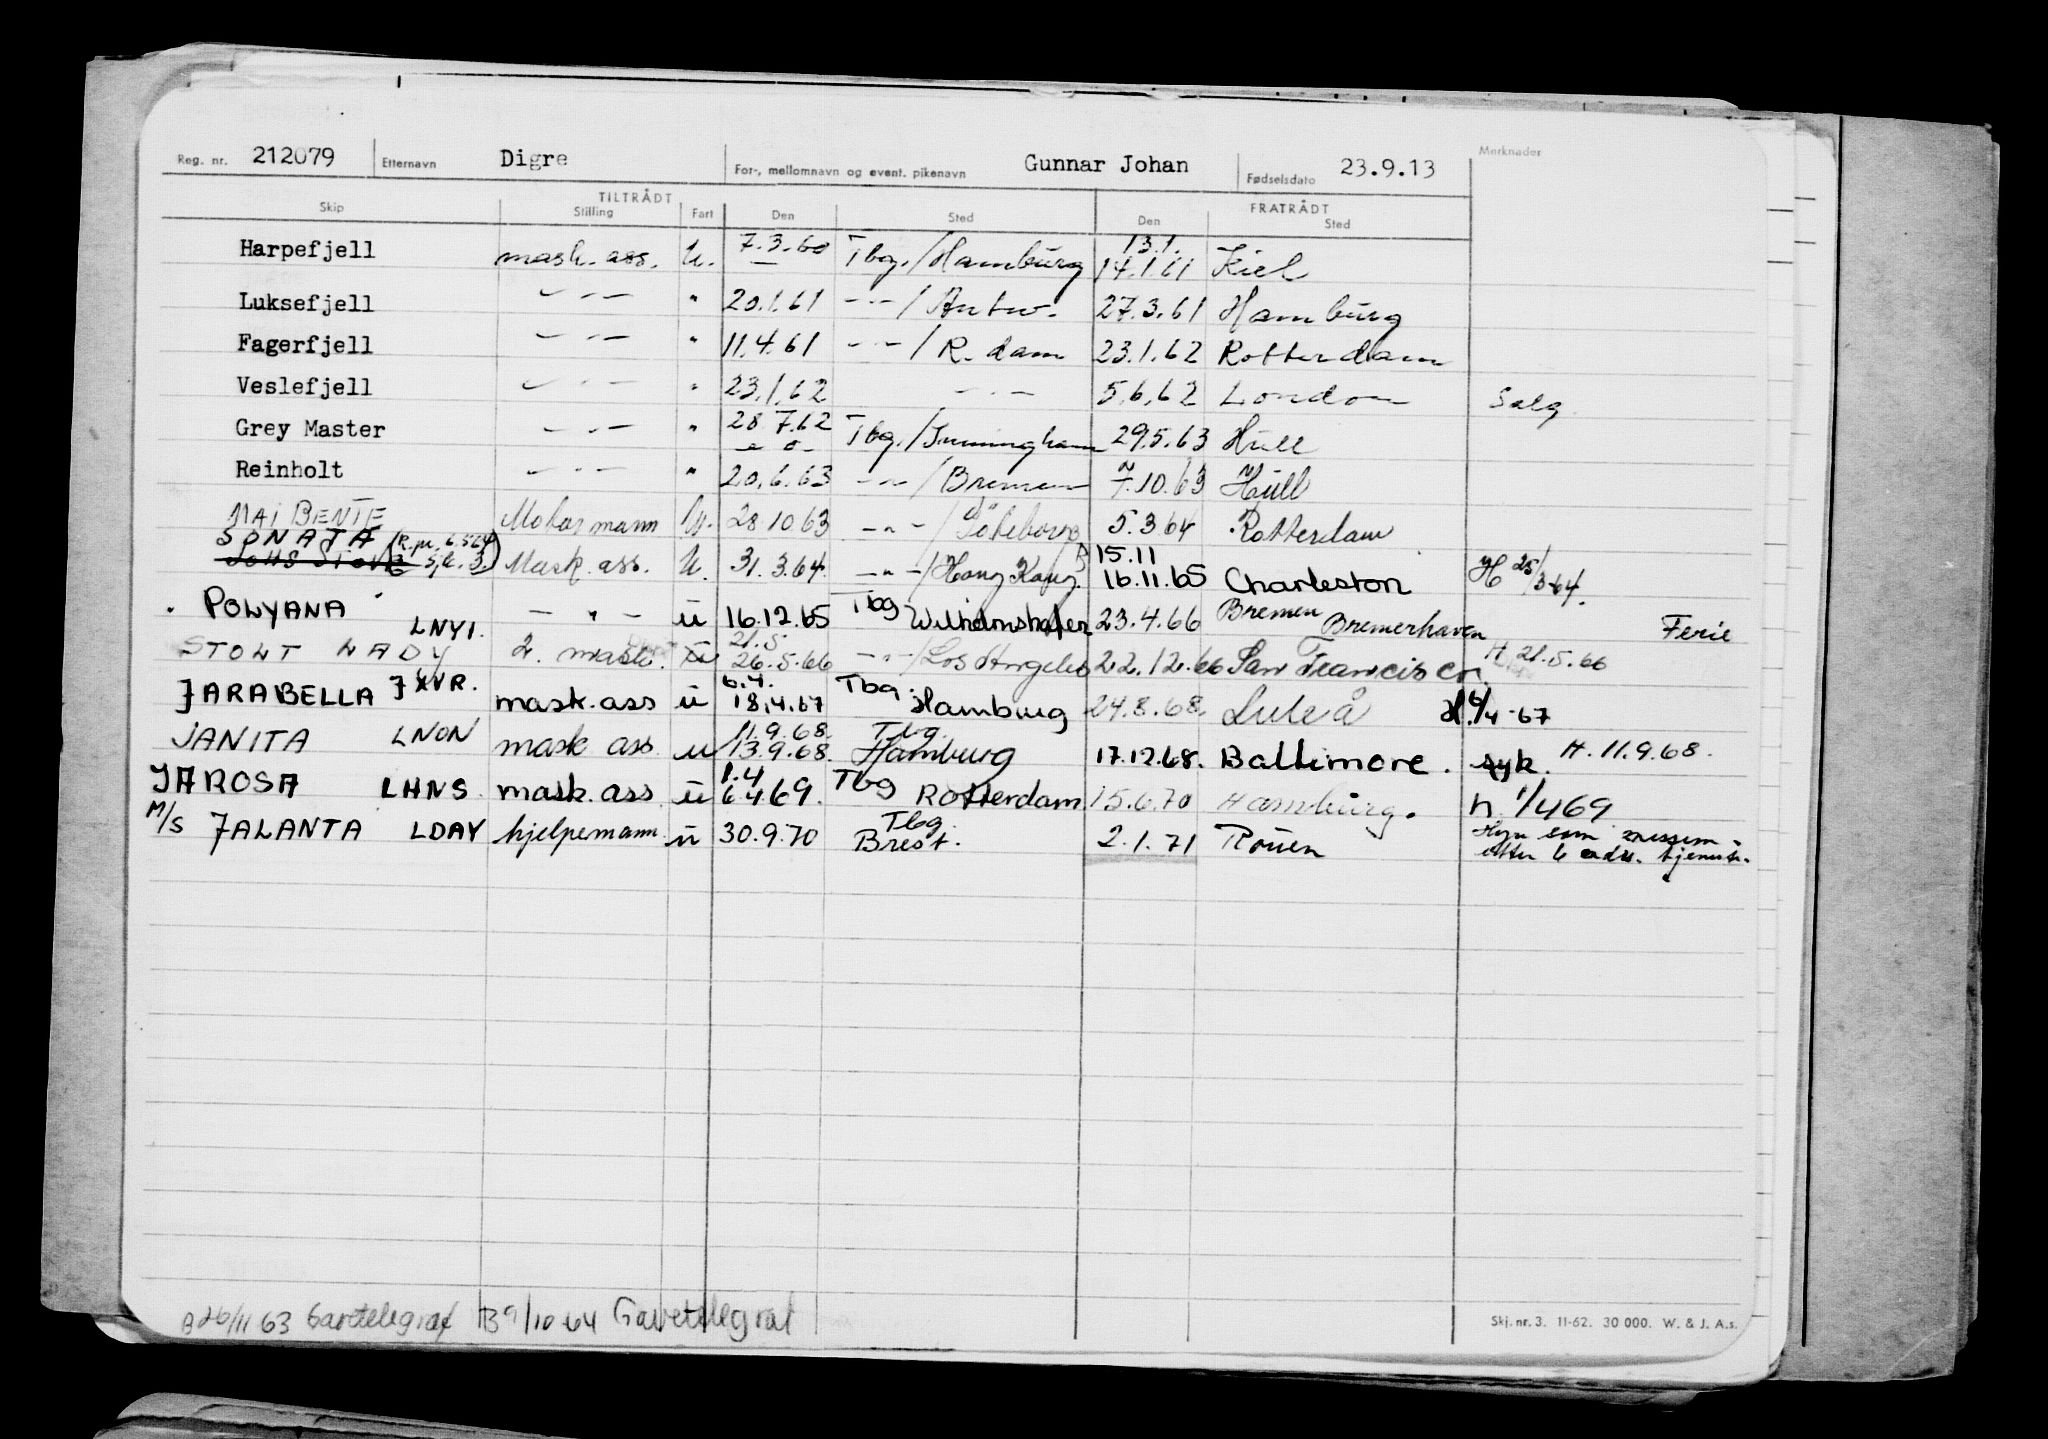 Reg. nr. 212079 Etternavn Digre For-, mellomnavn og event. pikenavn Gunnar Johan Fødselsdato 23.9.13 Merknader
TILTRÅDT FRATRÅDT
Skip Stilling Fart Den Sted Den Sted
Harpefjell mask. ass. U. 7.3.60 Tbg./Hamburg 13.1. 14.1.61 Kiel
Luksefjell — " — " 20.1.61 — " — / Antw. 27.3.61 Hamburg
Fagerfjell — " — " 11.4.61 — " — / R.dam 23.1.62 Rotterdam
Veslefjell — " — " 23.1.62 — " — 5.6.62 London Salg
Grey Master — " — " 28.7.62 Tbg./Immingham 29.5.63 Hull
Reinholt — " — " 20.6.63 — " — / Bremen 7.10.63 Hull
MAI BENTE Motormann U. 28.10.63 — " — / Göteborg 5.3.64 Rotterdam
SONATA
Mask. ass. U. 31.3.64. — " — / Hong Kong 15.11 16.11.65 Charleston H 25/3-64.
POLYANA LNYI. — " — ü 16.12.65 Tbg Wilhelmshafen 23.4.66 Bremen Bremerhaven Ferie
STOLT LADY 2. mask. 21.5 26.5.66 — " — / Los Angeles 22.12.66 San Francisco. H 21.5.66
JARABELLA JXVR. mask. ass ü 6.4. 18.4.67 Tbg. Hamburg 24.8.68. Luleå H. 6/4-67
JANITA LNON mask ass. u 11.9.68. 13.9.68. Tbg. Hamburg 17.12.68. Baltimore. syk. H. 11.9.68.
JAROSA LHNS. mask. ass. ü 1.4 6.4.69. Tbg Rotterdam 15.6.70 Hamburg. h. 1/4 69
M/S JALANTA LDAY hjelpemann. ü 30.9.70 Tbg. Brest. 2.1.71 Rouen Hyre som
etter 6
B 26/11 63 Gavetelegraf B 9/10 64 Gavetelegraf
Skj. nr. 3. 11-62. 30 000. W. & J. A.s.